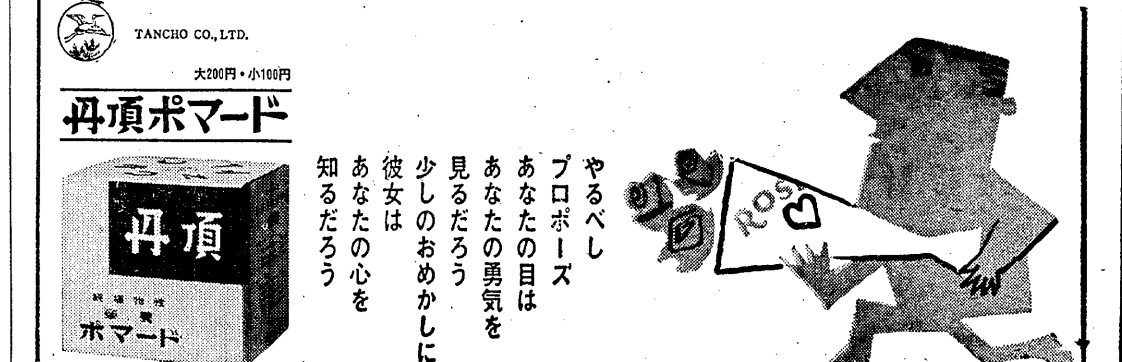 TANCHO CO.,LTD.
大200円・小100円
丹頂ポマード
丹頂
ポマード
やるべし
プロポーズ
あなたの目は
あなたの勇気を
見るだろう
少しのおめかしに
彼女は
あなたの心を
知るだろう
ROS